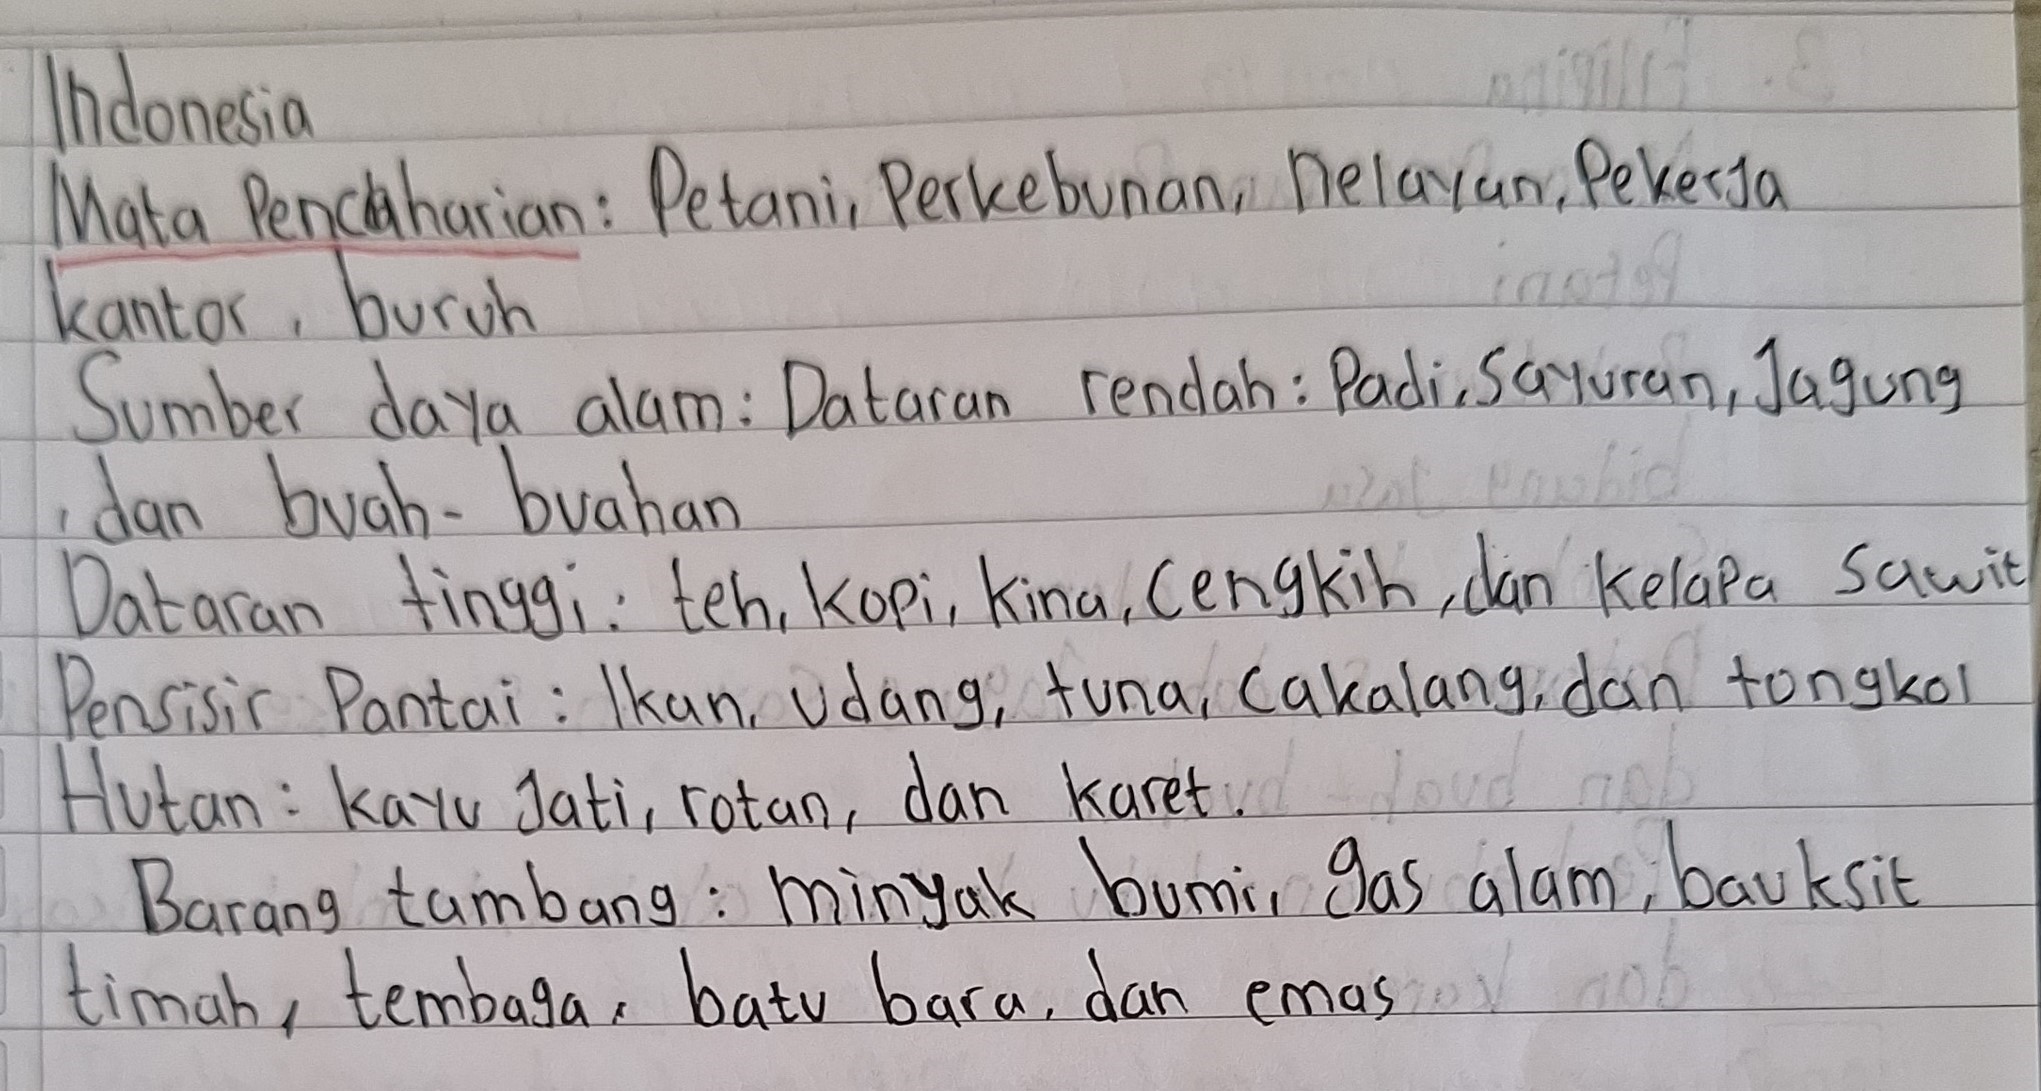 Indonesia
Mata Pencaharian: Petani, Perkebunan, nelayan, Pekerja
kantor, buruh
Sumber daya alam: Dataran rendah: Padi, Sayuran, Jagung
, dan buah-buahan
Dataran tinggi: teh, kopi, kina, Cengkih, dan kelapa sawit
Pensisir Pantai: Ikan, udang, tuna, cakalang, dan tongkol
Hutan: kayu Jati, rotan, dan karet.
Barang tambang: minyak bumi, gas alam, bauksit
timah, tembaga, batu bara, dan emas